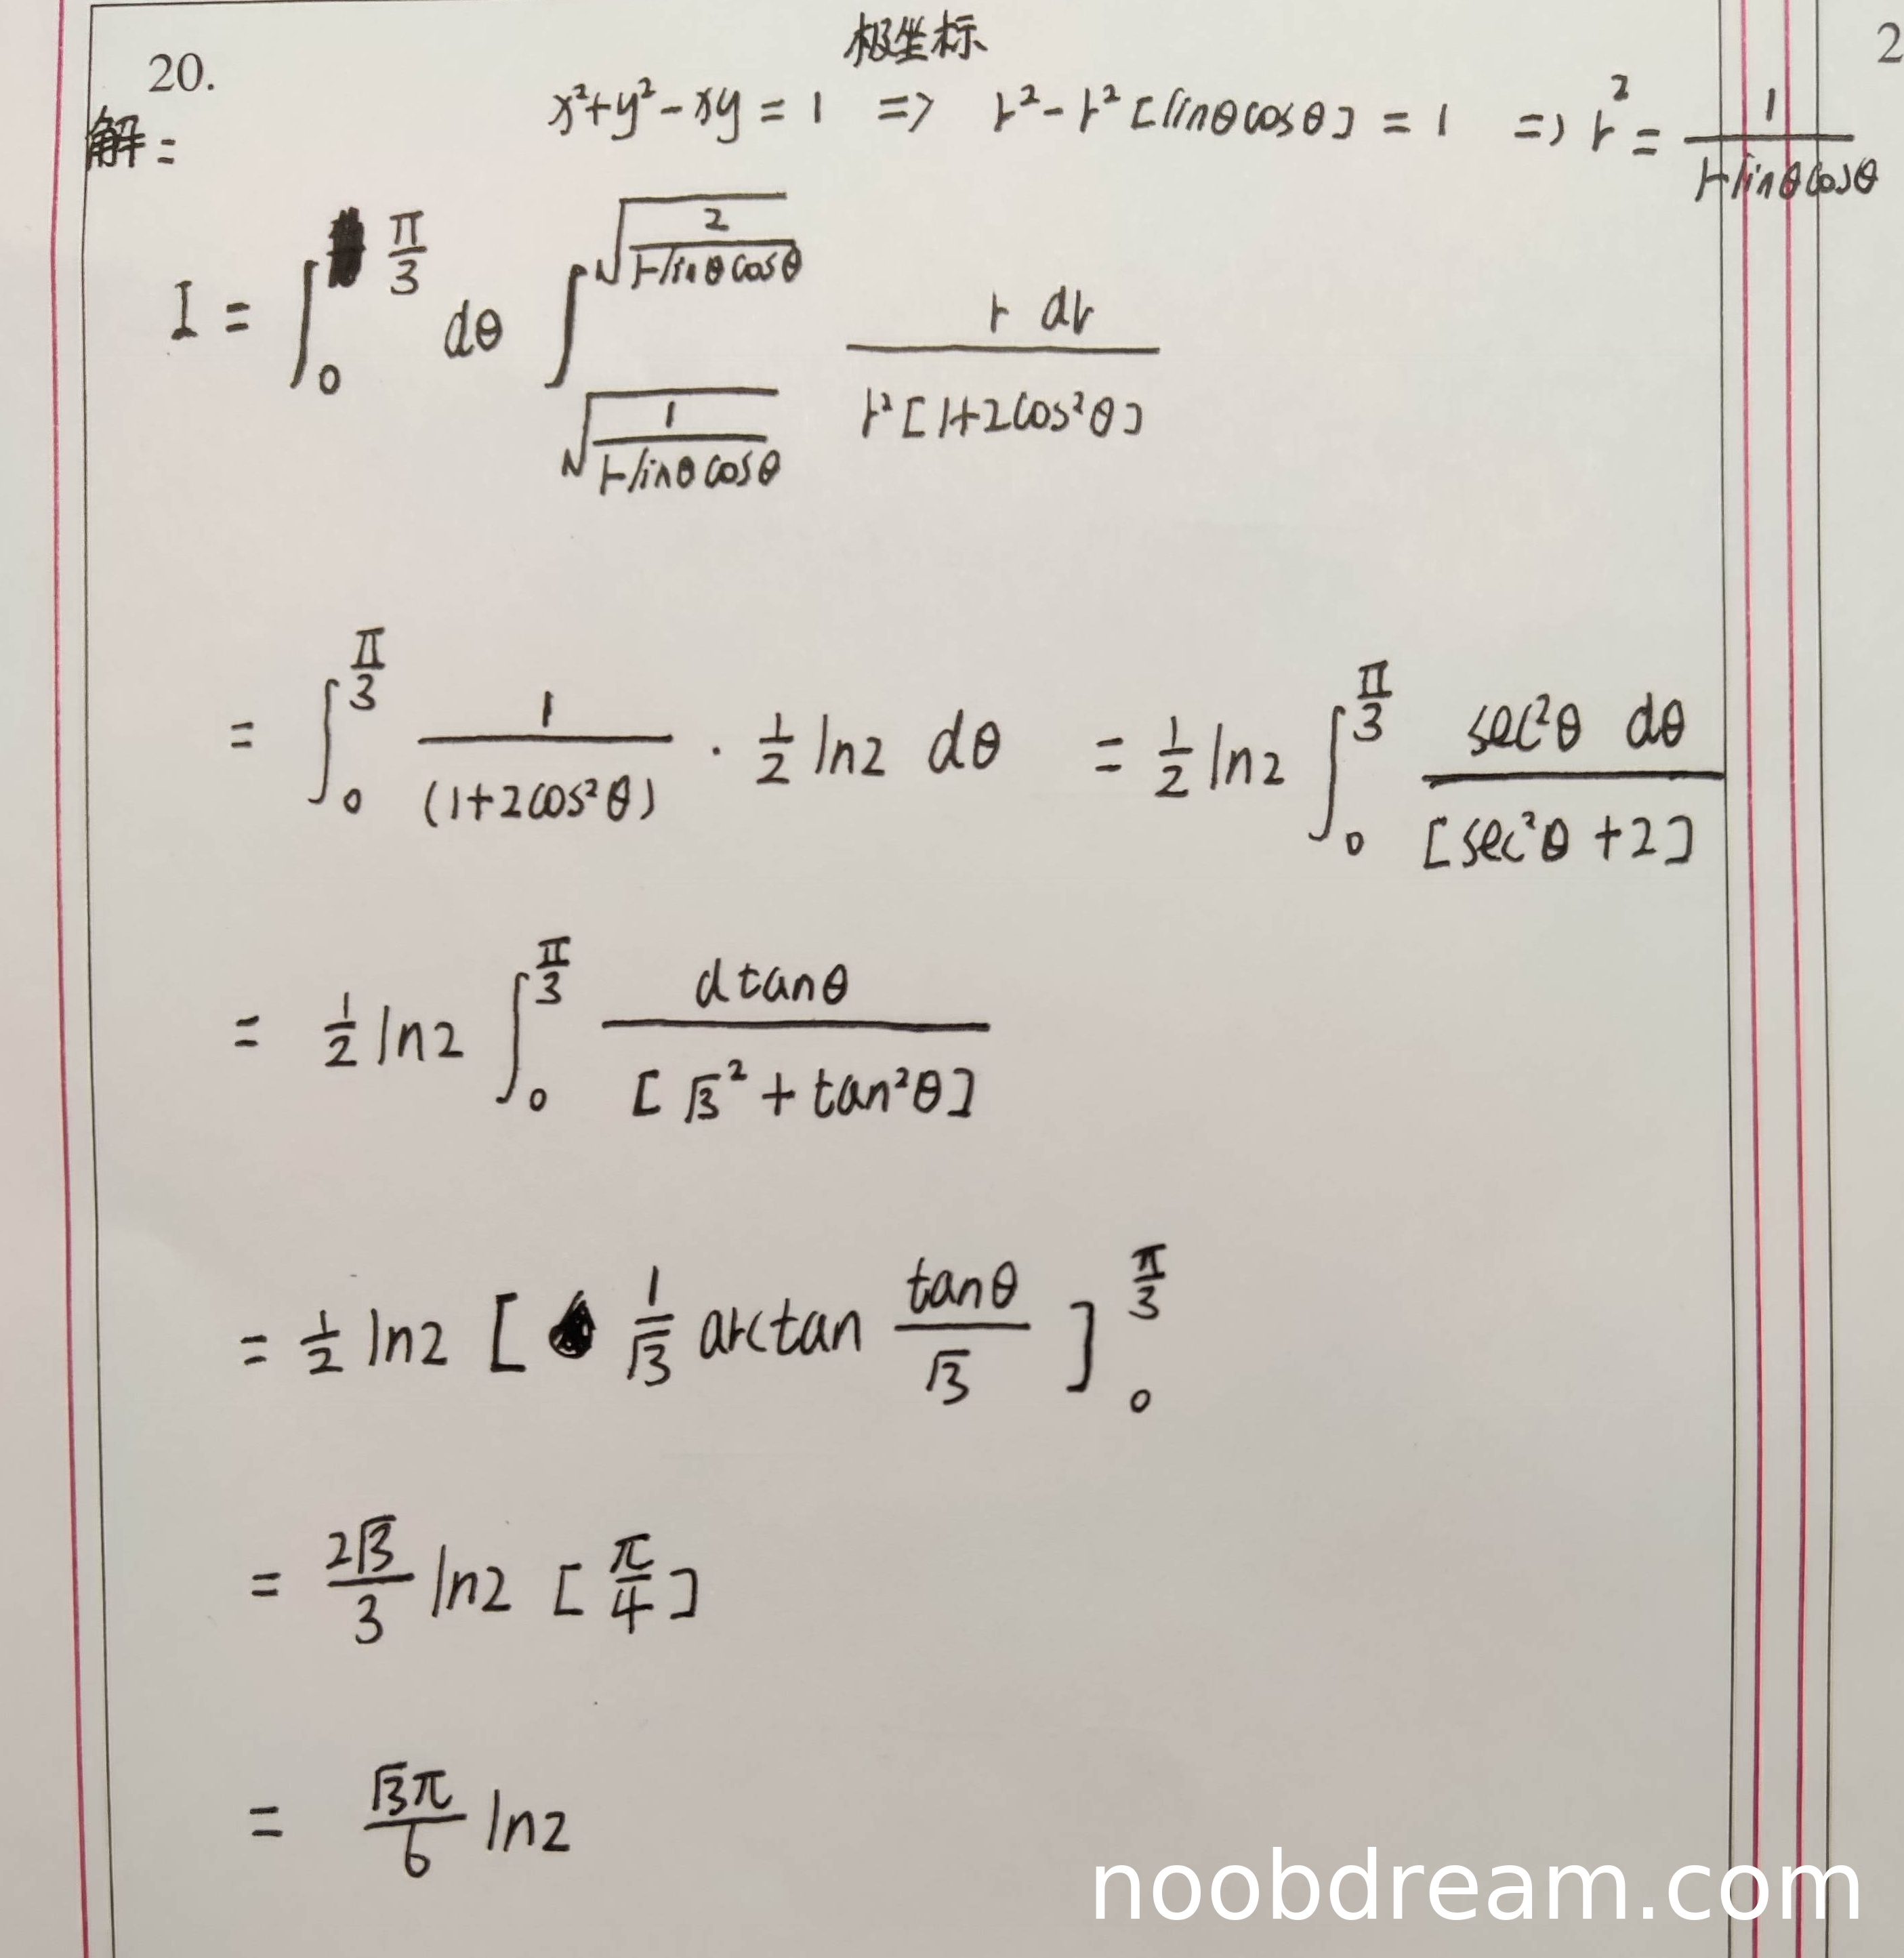 20.
2
极坐标
解： x²+y²-xy = 1 => r²-r²[sinθcosθ] = 1 => r² = 1/(1-sinθcosθ)
I = ∫₀^(π/3) dθ ∫_(√(1/(1-sinθcosθ)))^(√(2/(1-sinθcosθ))) r dr/(r²[1+2cos²θ])
= ∫₀^(π/3) 1/(1+2cos²θ) · 1/2 ln2 dθ = 1/2 ln2 ∫₀^(π/3) sec²θ dθ/[sec²θ+2]
= 1/2 ln2 ∫₀^(π/3) dtanθ/[√3² + tan²θ]
= 1/2 ln2 [1/√3 arctan tanθ/√3]₀^(π/3)
= 2√3/3 ln2 [π/4]
= √3π/6 ln2
noobdream.com